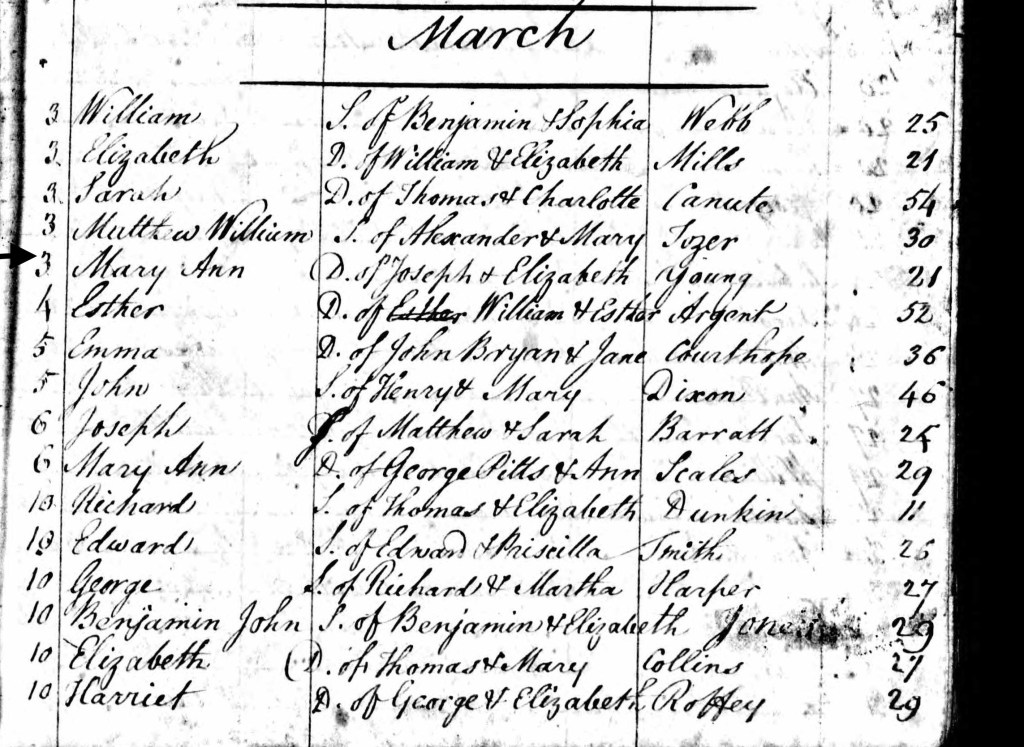 March
3 William S. of Benjamin & Sophia Webb 25
3 Elizabeth D. of William & Elizabeth Mills 21
3 Sarah D. of Thomas & Charlotte Canute 54
3 Matthew William S. of Alexander & Mary Tozer 30
3 Mary Ann D. of Joseph & Elizabeth Young 21
4 Esther D. of Esther William & Esther Argent 52
5 Emma D. of John Bryan & Jane Courthope 36
5 John S. of Henry & Mary Dixon 46
6 Joseph S. of Matthew & Sarah Barratt 25
6 Mary Ann D. of George Pitts & Ann Scales 29
10 Richard S. of Thomas & Elizabeth Dunkin 11
10 Edward S. of Edward & Priscilla Smith 26
10 George S. of Richard & Martha Harper 27
10 Benjamin John S. of Benjamin & Elizabeth Jones 29
10 Elizabeth D. of Thomas & Mary Collins 27
10 Harriet D. of George & Elizabeth Roffey 29